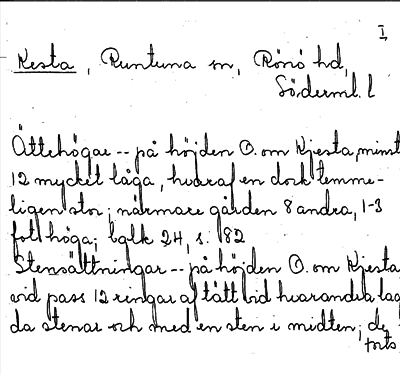 I,
Kesta, Runtuna sn, Rönö hd,
Söderml. l
Ättehögar -- på höjden O. om Kjesta, minst
12 mycket låga, hvaraf en dock temme-
ligen stor; närmare gården 8 andra, 1-3
fot höga; bglk 24, s. 82
Stensättningar -- på höjden O. om Kjesta
vid pass 12 ringar af tätt vid hvarandra lag
da stenar och med en sten i midten; de
forts